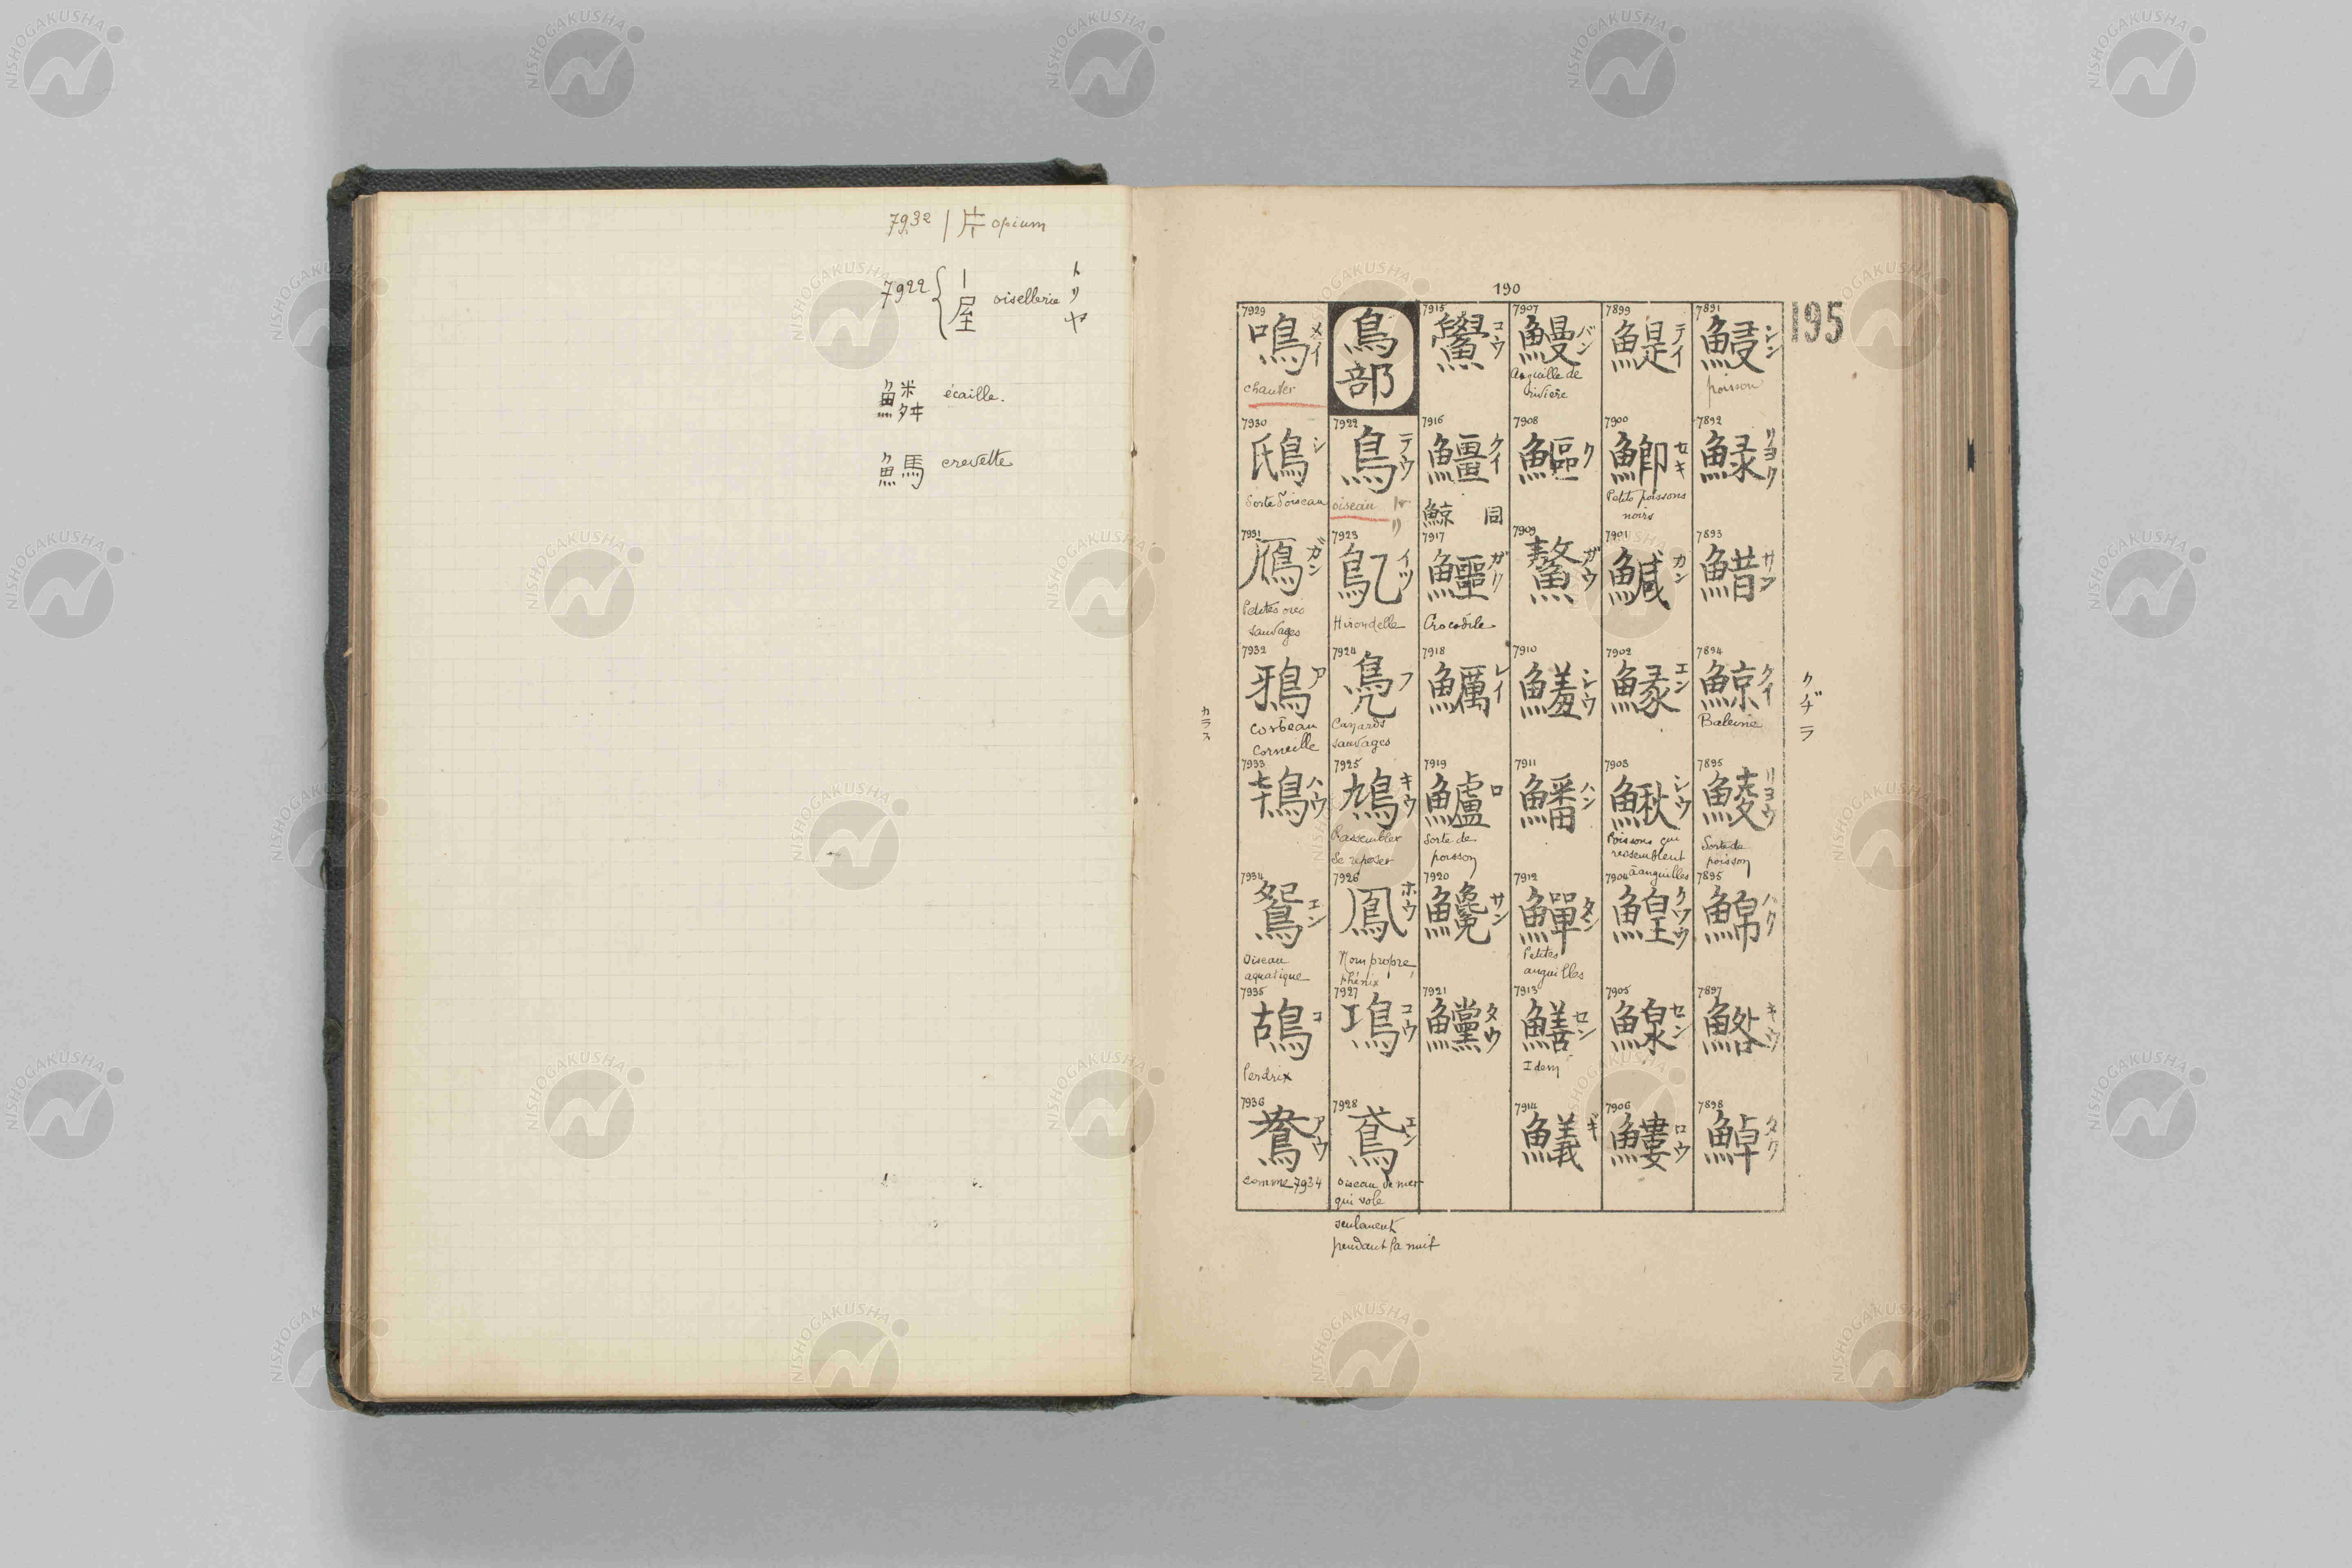 7932 | 片 opium
7922 { | 屋 oisellerie トリヤ
鱗 écaille.
魚馬 crevette
190
195
7891 鯼 シン
poisson
7892 リヨク
7893 鯌 サク
7894 鯨 ケイ
Baleine
クヂラ
7895 鯪 リヨウ
Sorte de
poisson
7895 ハク
7897 キウ
7898 タク
7899 鯷 テイ
7900 鯽 セキ
Petits poissons
noirs
7901 鰔 カン
7902 鰇 エン
7903 鰍 シウ
Poissons qui
ressemblent
à anguilles
7904 鰉 クワウ
7905 鰁 セン
7906 鰻 ロウ
7907 鰻 バン
Anguille de
rivière
7908 鰸 ク
7909 鰲 ガウ
7910 シウ
7911 鱕 ハン
7912 鱓 タン
Petites
anguilles
7913 鱔 セン
Idem
7914 鱶 ギ
7915 鱟 コウ
7916 鱷 ケイ
鯨 同
7917 鱷 ガク
Crocodile
7918 鱱 レイ
7919 鱸 ロ
Sorte de
poisson
7920 サン
7921 鱨 タウ
鳥部
7922 鳥 テウ
oiseau トリ
7923 鳦 イツ
Hirondelle
7924 鳧 フ
Canards
sauvages
7925 鳩 キウ
Rassembler
Se reposer
7926 鳳 ホウ
Nom propre,
Phénix
7927 鳿 コウ
7928 鳶 エン
Oiseau de mer
qui vole
seulement
pendant la nuit
7929 鳴 メイ
chanter
7930 鴟 シ
Sorte d'oiseau
7931 鴈 ガン
Petites oies
sauvages
7932 鴉 ア
Corbeau
Corneille
カラス
7933 鴇 ハウ
7934 鴛 エン
Oiseau
aquatique
7935 鴣 コ
Perdrix
7936 鴦 アウ
comme 7934